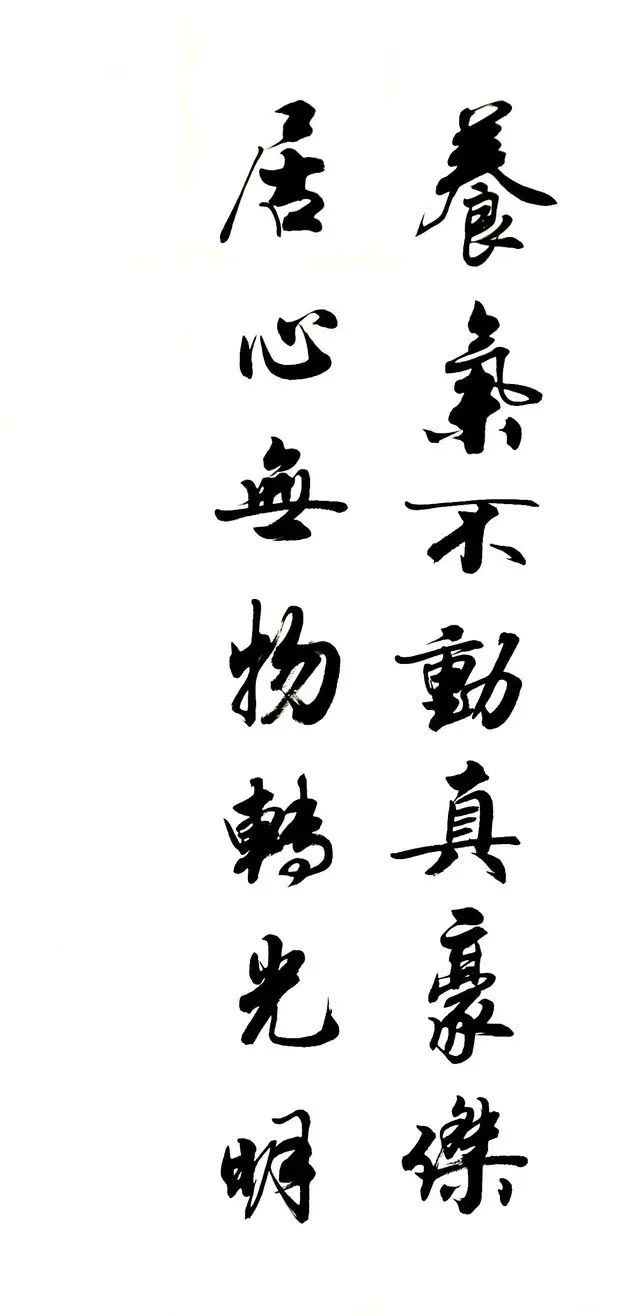 養氣不動真豪傑
居心無物轉光明